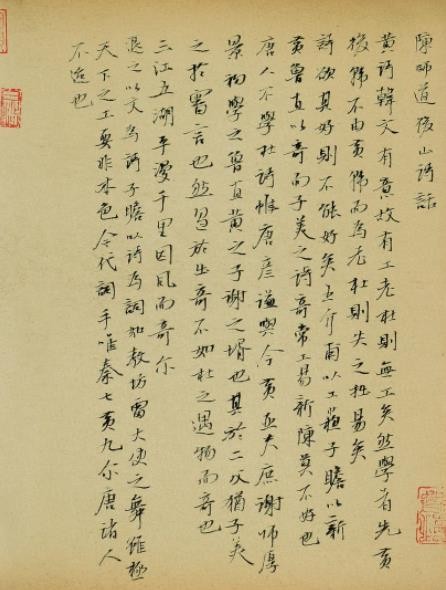 陳師道後山詩話
黃詩韓文有意故有工老杜則無工矣然學者先黃
後韓不由黃韓而為老杜則失之拙易矣
詩欲其好則不能好矣王介甫以工蘇子瞻以新
黃魯直以奇而子美之詩奇常工易新陳莫不好也
唐人不學杜詩惟唐彥謙與今黃亞夫庶謝師厚
景初學之魯直黃之子謝之壻也其於二父猶子美
之於審言也然過於出奇不如杜之遇物而奇也
三江五湖平漫千里因風而奇尔
退之以文為詩子瞻以詩為詞如教坊雷大使之舞雖極
天下之工要非本色今代詞手唯秦七黃九尔唐諸人
不迨也